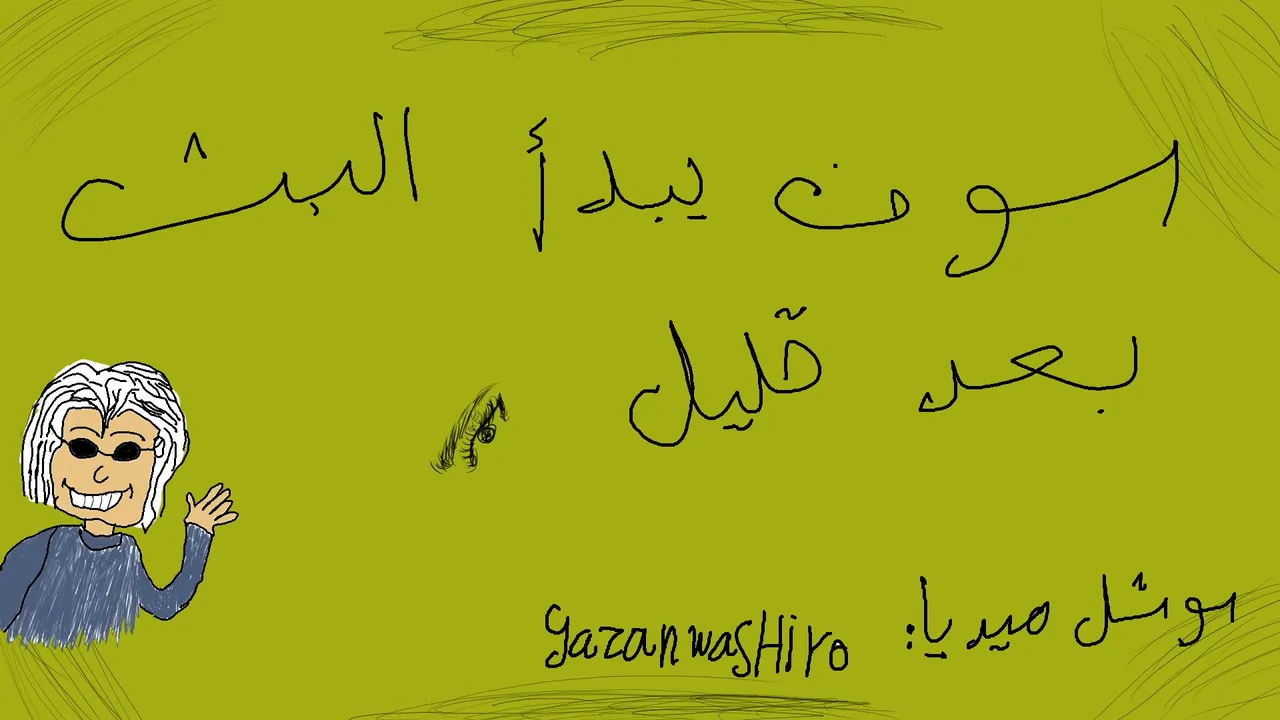 سوف يبدأ البث
بعد قليل
سوشل ميديا: yazanwasHiro